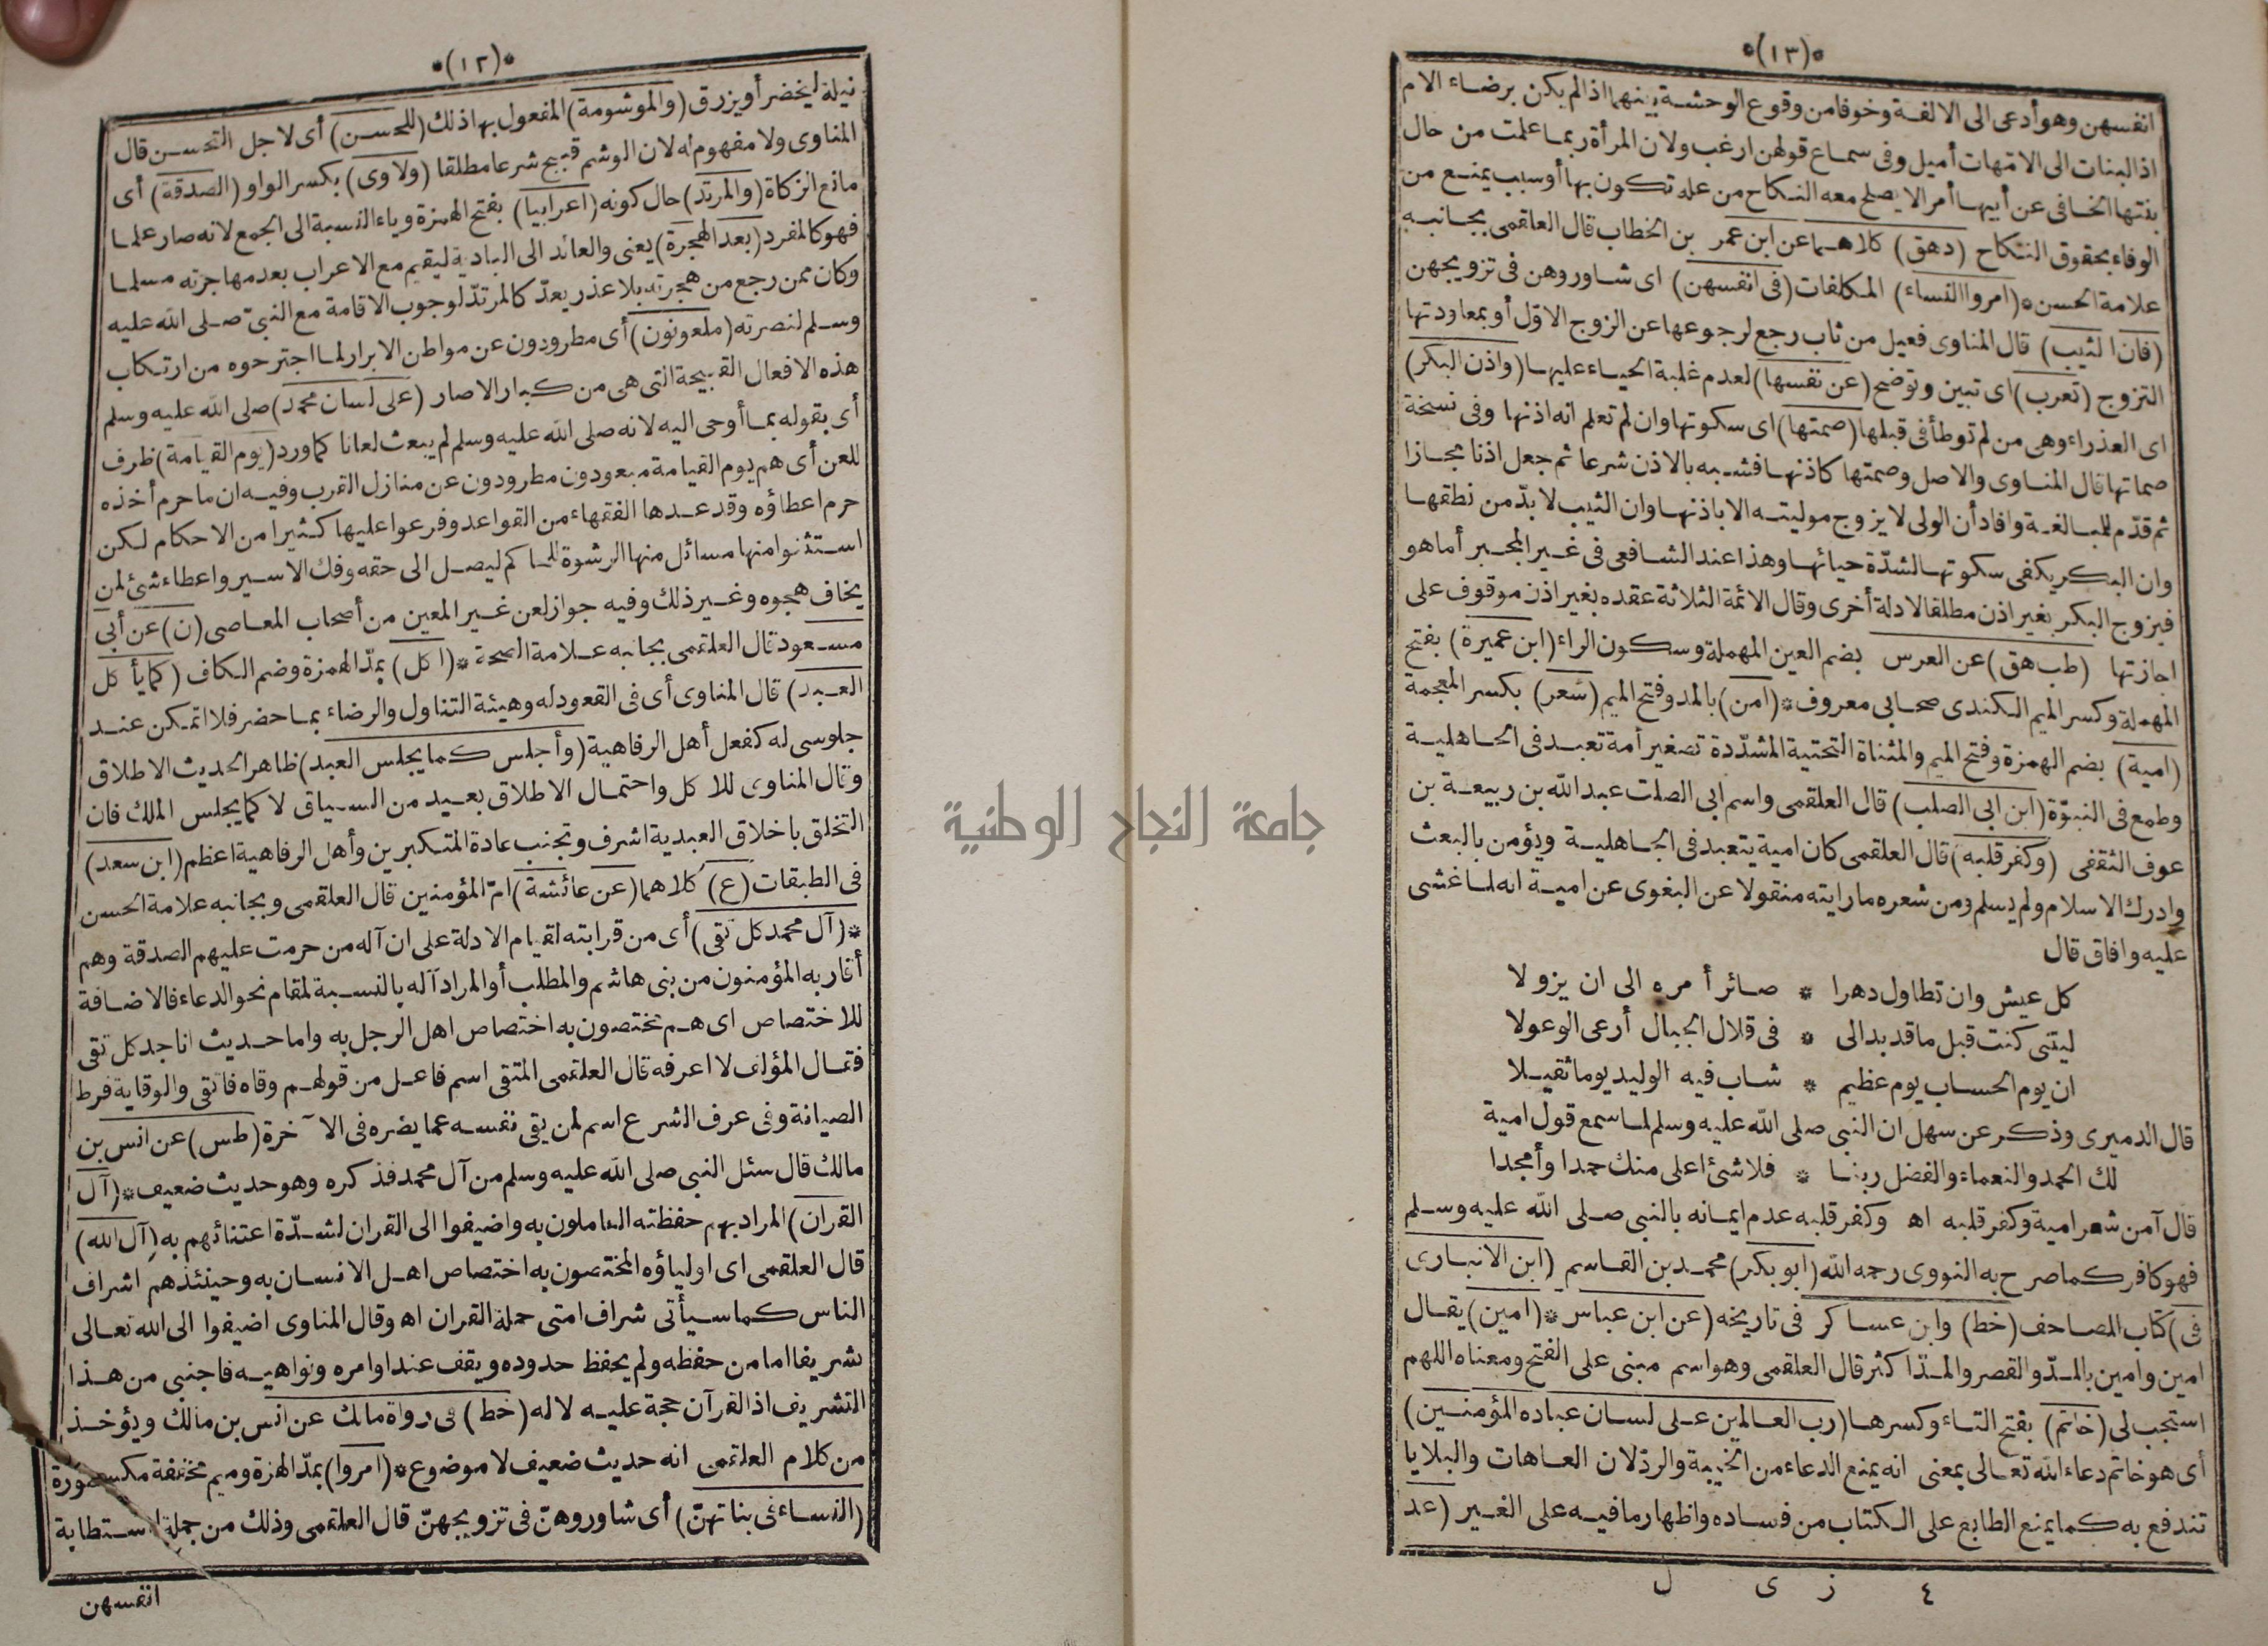 *(١٢)*
نيلة ليخضر أو يزرق (والموشومة) المفعول بها ذلك (للحسن) أى لاجل التحسن قال
المناوى ولا مفهوم له لان الوشم قبيح شرعا مطلقا (ولاوى) بكسر الواو (الصدقة) أى
مانع الزكاة (والمرتد) حال كونه (اعرابيا) بفتح الهمزة وياء النسبة الى الجمع لانه صار علما
فهو كالمفرد (بعد الهجرة) يعنى والعائد الى البادية ليقيم مع الاعراب بعد مهاجرته مسلما
وكان ممن رجع من هجرته بلا عذر يعدّ كالمرتدّ لوجوب الاقامة مع النبىّ صلى الله عليه
وسلم لنصرته (ملعونون) أى مطرودون عن مواطن الابرار لما اجترحوه من ارتكاب
هذه الافعال القبيحة التى هى من كبار الاصار (على لسان محمد) صلى الله عليه وسلم
أى بقوله بما أوحى اليه لانه صلى الله عليه وسلم لم يبعث لعانا كما ورد (يوم القيامة) ظرف
للعن أى هم يوم القيامة مبعودون مطرودون عن منازل القرب وفيه ان ما حرم أخذه
حرم اعطاؤه وقد عدها الفقهاء من القواعد وفرعوا عليها كثيرا من الاحكام لكن
استثنوا منها مسائل منها الرشوة للحاكم ليصل الى حقه وفك الاسير واعطاء شئ لمن
يخاف هجوه وغير ذلك وفيه جواز لعن غير المعين من أصحاب المعاصى (ن) عن أبى
مسعود قال العلقمى بجانبه علامة الصحة *(اكل) بمدّ الهمزة وضم الكاف (كما يأكل
العبد) قال المناوى أى فى القعود له وهيئة التناول والرضاء بما حضر فلا اتمكن عند
جلوسى له كفعل أهل الرفاهية (وأجلس كما يجلس العبد) ظاهر الحديث الاطلاق
وقال المناوى للاكل واحتمال الاطلاق بعيد من السياق لا كما يجلس الملك فان
التخلق باخلاق العبدية اشرف وتجنب عادة المتكبرين وأهل الرفاهية اعظم (ابن سعد)
فى الطبقات (ع) كلاهما (عن عائشة) امّ المؤمنين قال العلقمى وبجانبه علامة الحسن
*(آل محمد كل تقى) أى من قرابته لقيام الادلة على ان آله من حرمت عليهم الصدقة وهم
أقاربه المؤمنون من بنى هاشم والمطلب أو المراد آله بالنسبة لمقام نحو الدعاء فالاضافة
للاختصاص اى هم مختصون به اختصاص اهل الرجل به واما حديث انا جد كل تقى
فقال المؤلف لا اعرفه قال العلقمى المتقى اسم فاعل من قولهم وقاه فاتقى والوقاية فرط
الصيانة وفى عرف الشرع اسم لمن يقى نفسه عما يضره فى الآخرة (طس) عن انس بن
مالك قال سئل النبى صلى الله عليه وسلم من آل محمد فذكره وهو حديث ضعيف *(آل
القرآن) المراد بهم حفظته العاملون به واضيفوا الى القران لشدّة اعتنائهم به (آل الله)
قال العلقمى اى اولياؤه المختصون به اختصاص اهل الانسان به وحينئذ هم اشراف
الناس كما سيأتى شراف امتى حملة القران اه وقال المناوى اضيفوا الى الله تعالى
تشريفا اما من حفظه ولم يحفظ حدوده ويقف عند اوامره ونواهيه فاجنبى من هذا
التشريف اذ القرآن حجة عليه لا له (خط) فى رواة مالك عن انس بن مالك ويؤخذ
من كلام العلقمى انه حديث ضعيف لا موضوع *(آمروا) بمدّ الهمزة وميم مخففة مكسورة
(النساء فى بناتهنّ) أى شاوروهنّ فى تزويجهنّ قال العلقمى وذلك من جملة استطابة
انفسهن
*(١٣)*
انفسهن وهو أدعى الى الالفة وخوفا من وقوع الوحشة بينهما اذا لم يكن برضاء الام
اذ البنات الى الامّهات أميل وفى سماع قولهن ارغب ولان المرأة ربما علمت من حال
بنتها الخافى عن أبيها أمرا لا يصلح معه النكاح من علة تكون بها أو سبب يمنع من
الوفاء بحقوق النكاح (دهق) كلاهما عن ابن عمر بن الخطاب قال العلقمى بجانبه
علامة الحسن *(آمروا النساء) المكلفات (فى انفسهن) اى شاوروهن فى تزويجهن
(فان الثيب) قال المناوى فعيل من ثاب رجع لرجوعها عن الزوج الاوّل أو بمعاودتها
التزوج (تعرب) اى تبين وتوضح (عن نفسها) لعدم غلبة الحياء عليها (واذن البكر)
اى العذراء وهى من لم توطأ فى قبلها (صمتها) اى سكوتها وان لم تعلم انه اذنها وفى نسخة
صماتها قال المناوى والاصل وصمتها كاذنها فشبه بالاذن شرعا ثم جعل اذنا مجازا
ثم قدّم للمبالغة وافاد أن الولى لا يزوج موليته الا باذنها وان الثيب لا بدّ من نطقها
وان البكر يكفى سكوتها لشدّة حيائها وهذا عند الشافعى فى غير المجبر أما هو
فيزوج البكر بغير اذن مطلقا لادلة أخرى وقال الائمة الثلاثة عقده بغير اذن موقوف على
اجازتها (طب هق) عن العرس بضم العين المهملة وسكون الراء (ابن عميرة) بفتح
المهملة وكسر الميم الكندى صحابى معروف *(آمن) بالمد وفتح الميم (شعر) بكسر المعجمة
(امية) بضم الهمزة وفتح الميم والمثناة التحتية المشدّدة تصغير أمة تعبد فى الجاهلية
وطمع فى النبوّة (ابن ابى الصلب) قال العلقمى واسم ابى الصلت عبد الله بن ربيعة بن
عوف الثقفى (وكفر قلبه) قال العلقمى كان امية يتعبد فى الجاهلية ويؤمن بالبعث
وادرك الاسلام ولم يسلم ومن شعره ما رايته منقولا عن البغوى عن امية انه لما غشى
عليه وافاق قال
كل عيش وان تطاول دهرا * صائر أمره الى ان يزولا
ليتنى كنت قبل ما قد بدالى * فى قلال الجبال أرعى الوعولا
ان يوم الحساب يوم عظيم * شاب فيه الوليد يوما ثقيلا
قال الدميرى وذكر عن سهل ان النبى صلى الله عليه وسلم لما سمع قول امية
لك الحمد والنعماء والفضل ربنا * فلا شئ اعلى منك حمدا وأمجدا
قال آمن شعر امية وكفر قلبه اه وكفر قلبه عدم ايمانه بالنبى صلى الله عليه وسلم
فهو كافر كما صرح به النووى رحمه الله (ابو بكر) محمد بن القاسم (ابن الانبارى
فى) كتاب المصاحف (خط) وابن عساكر فى تاريخه (عن ابن عباس *(آمين) يقال
امين وامين بالمدّ والقصر والمدّ اكثر قال العلقمى وهو اسم مبنى على الفتح ومعناه اللهم
استجب لى (خاتم) بفتح التاء وكسرها (رب العالمين على لسان عباده المؤمنين)
أى هو خاتم دعاء الله تعالى بمعنى انه يمنع الدعاء من الخيبة والردّ لان العاهات والبلايا
تندفع به كما يمنع الطابع على الكتاب من فساده واظهار ما فيه على الغير (عد
٤ ز ى ل
جامعة النجاح الوطنية